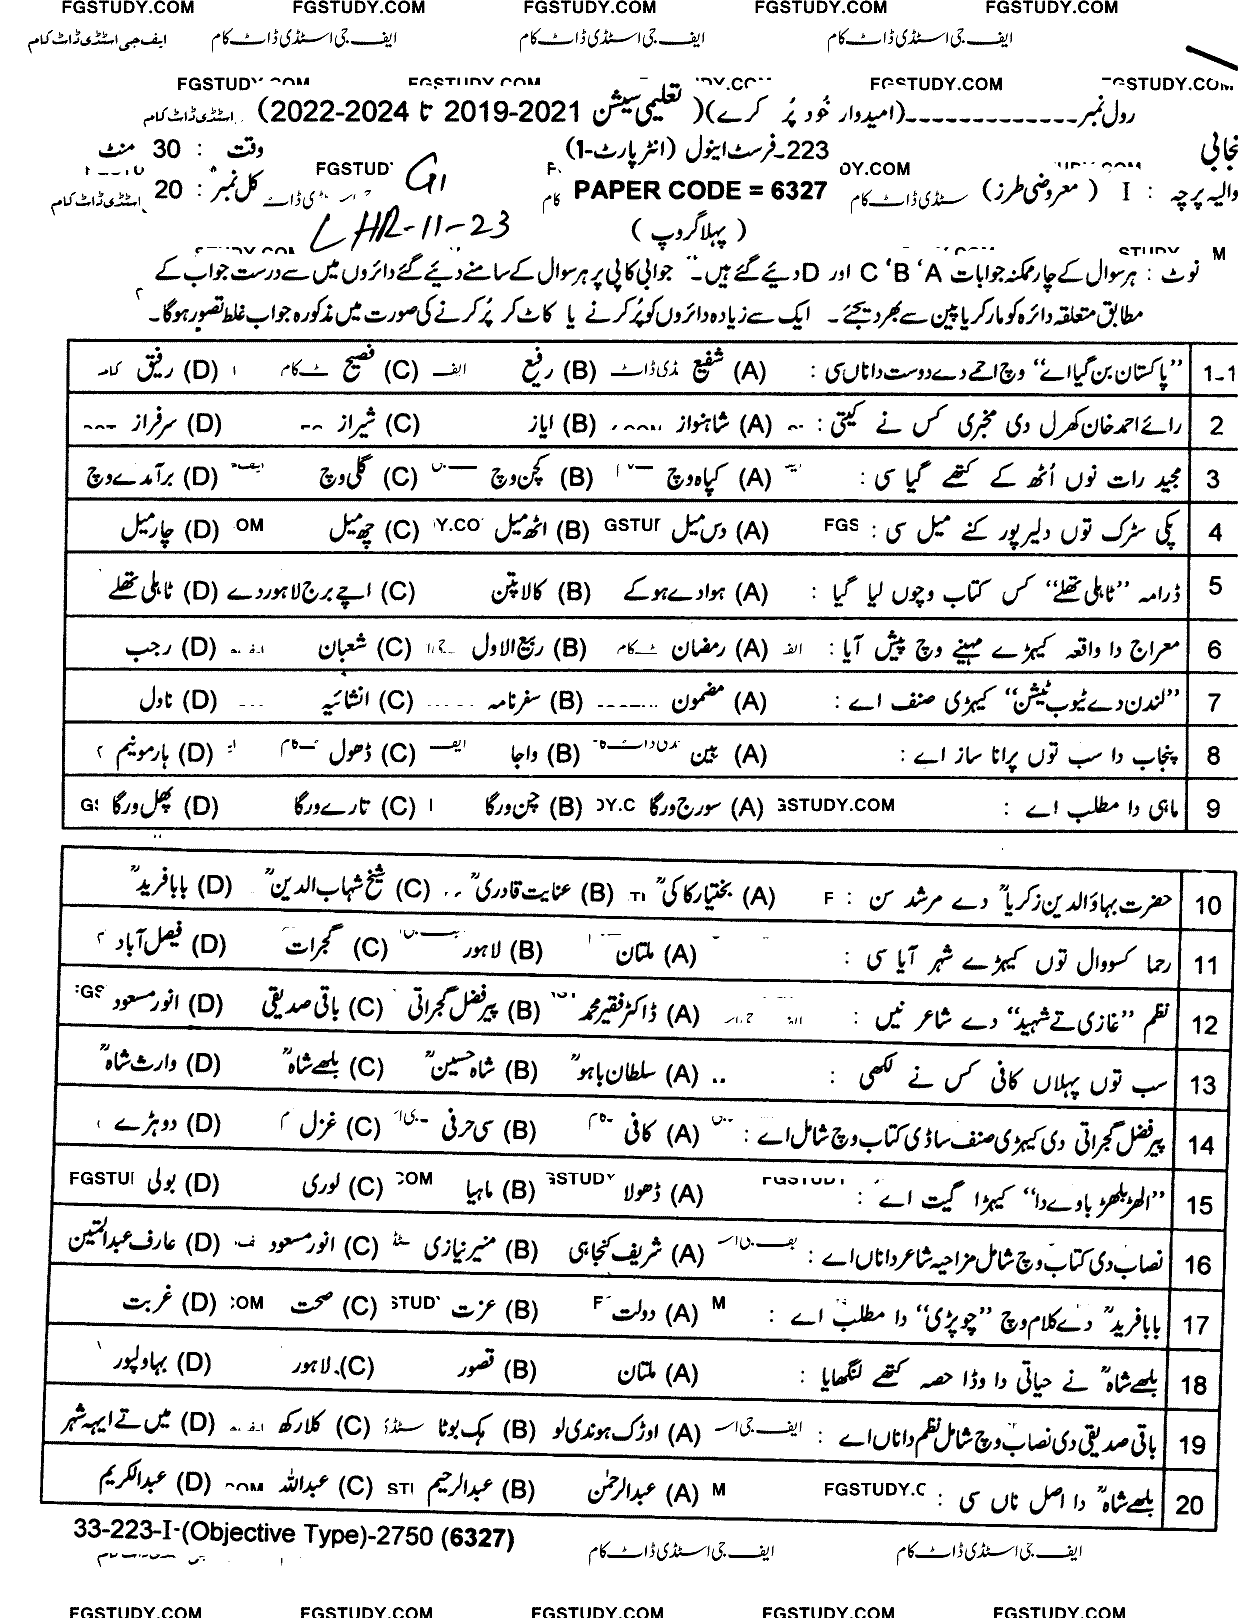 FGSTUDY.COM FGSTUDY.COM FGSTUDY.COM FGSTUDY.COM FGSTUDY.COM
ایف جی اسٹڈی ڈاٹ کام ایف جی اسٹڈی ڈاٹ کام ایف جی اسٹڈی ڈاٹ کام ایف جی اسٹڈی ڈاٹ کام
FGSTUDY.COM FGSTUDY.COM FGSTUDY.COM
رول نمبر۔۔۔۔۔۔۔۔۔۔۔۔۔(امیدوار خُود پُر کرے)( تعلیمی سیشن 2021-2019 تا 2024-2022)
223۔فرسٹ اینول (انٹر پارٹ-1) وقت : 30 منٹ
والیہ پرچہ : I ( معروضی طرز) PAPER CODE = 6327 کل نمبر : 20
G1
LHR-11-23
( پہلا گروپ )
نوٹ : ہر سوال کے چار ممکنہ جوابات A ' B ' C اور D دیئے گئے ہیں۔ جوابی کاپی پر ہر سوال کے سامنے دیئے گئے دائروں میں سے درست جواب کے
مطابق متعلقہ دائرہ کو مارکر یا پین سے بھر دیجئے۔ ایک سے زیادہ دائروں کو پُر کرنے یا کاٹ کر پُر کرنے کی صورت میں مذکورہ جواب غلط تصور ہوگا۔
1-1 "پاکستان بن گیا اے" وچ احمے دے دوست دا ناں سی : (A) شفیع (B) رفیع (C) فصیح (D) رفیق
2 رائے احمد خان کھرل دی مخبری کس نے کیتی : (A) شاہنواز (B) ایاز (C) شیراز (D) سرفراز
3 مجید رات نوں اُٹھ کے کتھے گیا سی : (A) کپاہ وچ (B) کچن وچ (C) گلی وچ (D) برآمدے وچ
4 پکی سڑک توں دلیر پور کنے میل سی : (A) دس میل (B) اٹھ میل (C) چھ میل (D) چار میل
5 ڈرامہ "ٹاہلی تھلے" کس کتاب وچوں لیا گیا : (A) ہوا دے ہوکے (B) کالا پتن (C) اچے برج لاہور دے (D) ٹاہلی تھلے
6 معراج دا واقعہ کیہڑے مہینے وچ پیش آیا : (A) رمضان (B) ربیع الاول (C) شعبان (D) رجب
7 "لندن دے ٹیوب ٹیشن" کیہڑی صنف اے : (A) مضمون (B) سفرنامہ (C) انشائیہ (D) ناول
8 پنجاب دا سب توں پرانا ساز اے : (A) بین (B) واجا (C) ڈھول (D) ہارمونیم
9 ماہی دا مطلب اے : (A) سورج ورگا (B) چن ورگا (C) تارے ورگا (D) پھل ورگا
10 حضرت بہاؤالدین زکریاؒ دے مرشد سن : (A) بختیار کاکیؒ (B) عنایت قادریؒ (C) شیخ شہاب الدینؒ (D) بابا فریدؒ
11 رحما کسووال توں کیہڑے شہر آیا سی : (A) ملتان (B) لاہور (C) گجرات (D) فیصل آباد
12 نظم "غازی تے شہید" دے شاعر نیں : (A) ڈاکٹر فقیر محمد (B) پیر فضل گجراتی (C) باقی صدیقی (D) انور مسعود
13 سب توں پہلاں کافی کس نے لکھی : (A) سلطان باہوؒ (B) شاہ حسینؒ (C) بلھے شاہؒ (D) وارث شاہؒ
14 پیر فضل گجراتی دی کیہڑی صنف ساڈی کتاب وچ شامل اے : (A) کافی (B) سی حرفی (C) غزل (D) دوہڑے
15 "الھڑ بلھڑ باوے دا" کیہڑا گیت اے : (A) ڈھولا (B) ماہیا (C) لوری (D) بولی
16 نصاب دی کتاب وچ شامل مزاحیہ شاعر دا ناں اے : (A) شریف کنجاہی (B) منیر نیازی (C) انور مسعود (D) عارف عبدالمتین
17 بابا فریدؒ دے کلام وچ "چوپڑی" دا مطلب اے : (A) دولت (B) عزت (C) صحت (D) غربت
18 بلھے شاہؒ نے حیاتی دا وڈا حصہ کتھے لنگھایا : (A) ملتان (B) قصور (C) لاہور (D) بہاولپور
19 باقی صدیقی دی نصاب وچ شامل نظم دا ناں اے : (A) اوڑک ہوندی لو (B) ہک بوٹا (C) کلا رکھ (D) میں تے ایہہ شہر
20 بلھے شاہؒ دا اصل ناں سی : (A) عبدالرحمٰن (B) عبدالرحیم (C) عبداللہ (D) عبدالکریم
33-223-I-(Objective Type)-2750 (6327)
ایف جی اسٹڈی ڈاٹ کام ایف جی اسٹڈی ڈاٹ کام
FGSTUDY.COM FGSTUDY.COM FGSTUDY.COM FGSTUDY.COM FGSTUDY.COM